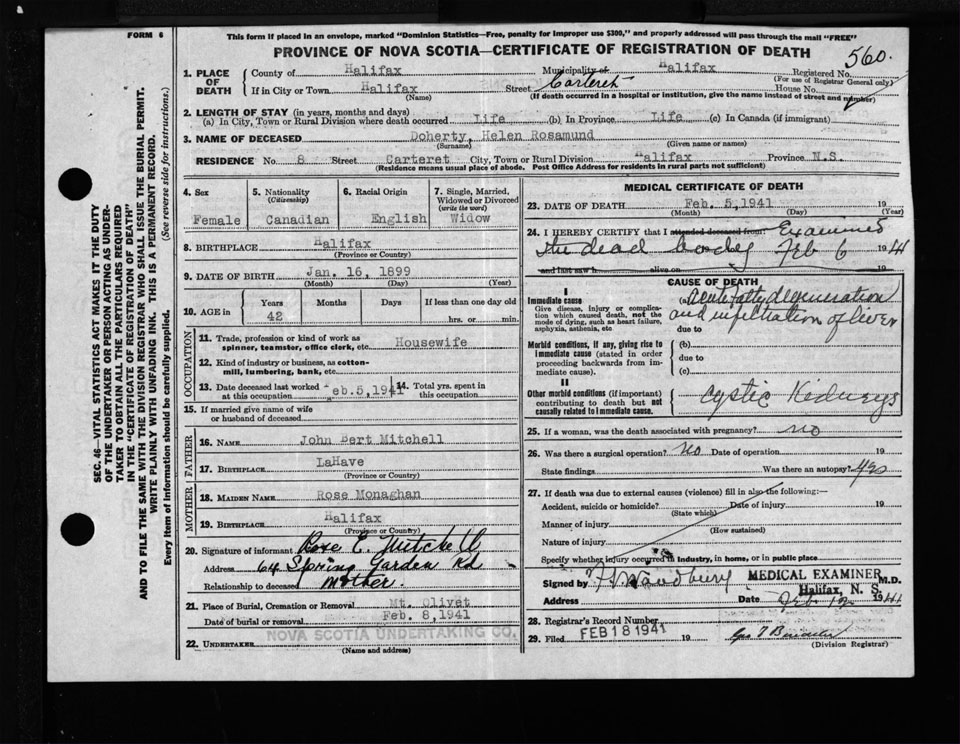 FORM 6
This form if placed in an envelope, marked "Dominion Statistics—Free, penalty for improper use $300," and properly addressed will pass through the mail "FREE"
PROVINCE OF NOVA SCOTIA—CERTIFICATE OF REGISTRATION OF DEATH
560.
1. PLACE OF DEATH
County of Halifax Municipality of Halifax Registered No.
(For use of Registrar General only)
If in City or Town Halifax Street Carteret House No.
(Name) (If death occurred in a hospital or institution, give the name instead of street and number)
2. LENGTH OF STAY (in years, months and days)
(a) In City, Town or Rural Division where death occurred Life (b) In Province Life (c) In Canada (if immigrant)
3. NAME OF DECEASED Doherty, Helen Rosamund
(Surname) (Given name or names)
RESIDENCE No. 8 Street Carteret City, Town or Rural Division Halifax Province N.S.
(Residence means usual place of abode. Post Office Address for residents in rural parts not sufficient)
4. Sex
Female
5. Nationality
(Citizenship)
Canadian
6. Racial Origin
English
7. Single, Married, Widowed or Divorced
(write the word)
Widow
8. BIRTHPLACE Halifax
(Province or Country)
9. DATE OF BIRTH Jan. 16, 1899
(Month) (Day) (Year)
10. AGE in Years Months Days If less than one day old
42 hrs. or min.
OCCUPATION
11. Trade, profession or kind of work as spinner, teamster, office clerk, etc. Housewife
12. Kind of industry or business, as cotton-mill, lumbering, bank, etc.
13. Date deceased last worked at this occupation Feb.5,1941
14. Total yrs. spent in this occupation
15. If married give name of wife or husband of deceased
FATHER
16. NAME John Bert Mitchell
17. BIRTHPLACE LaHave
(Province or Country)
MOTHER
18. MAIDEN NAME Rose Monaghan
19. BIRTHPLACE Halifax
(Province or Country)
20. Signature of informant Rose E. Mitchell
Address 64 Spring Garden Rd
Relationship to deceased Mother.
21. Place of Burial, Cremation or Removal Mt. Olivet
Date of burial or removal Feb. 8,1941
NOVA SCOTIA UNDERTAKING CO.
22. UNDERTAKER
(Name and address)
MEDICAL CERTIFICATE OF DEATH
23. DATE OF DEATH Feb. 5,1941 19
(Month) (Day) (Year)
24. I HEREBY CERTIFY that I attended deceased from: Examined
the dead body Feb 6 1941
and last saw h alive on 19
CAUSE OF DEATH
I
Immediate cause
Give disease, injury or complication which caused death, not the mode of dying, such as heart failure, asphyxia, asthenia, etc
(a) Acute fatty degeneration
and infiltration of liver
due to
Morbid conditions, if any, giving rise to immediate cause (stated in order proceeding backwards from immediate cause).
(b)
due to
(c)
II
Other morbid conditions (if important) contributing to death but not causally related to immediate cause.
Cystic Kidneys
25. If a woman, was the death associated with pregnancy? no
26. Was there a surgical operation? No Date of operation 19
State findings Was there an autopsy? Yes
27. If death was due to external causes (violence) fill in also the following:—
Accident, suicide or homicide? Date of injury 19
(State which)
Manner of injury
(How sustained)
Nature of injury
Specify whether injury occurred in industry, in home, or in public place
Signed by Woodbury MEDICAL EXAMINER M.D.
Halifax, N. S.
Address Date Feb 12 1941
28. Registrar's Record Number
29. Filed FEB 18 1941 19
(Division Registrar)
SEC. 46—VITAL STATISTICS ACT MAKES IT THE DUTY
OF THE UNDERTAKER OR PERSON ACTING AS UNDER-
TAKER TO OBTAIN ALL THE PARTICULARS REQUIRED
IN THE "CERTIFICATE OF REGISTRATION OF DEATH"
AND TO FILE THE SAME WITH THE DIVISION REGISTRAR WHO SHALL ISSUE THE BURIAL PERMIT.
WRITE PLAINLY WITH UNFADING INK. THIS IS A PERMANENT RECORD.
Every item of information should be carefully supplied. (See reverse side for instructions.)